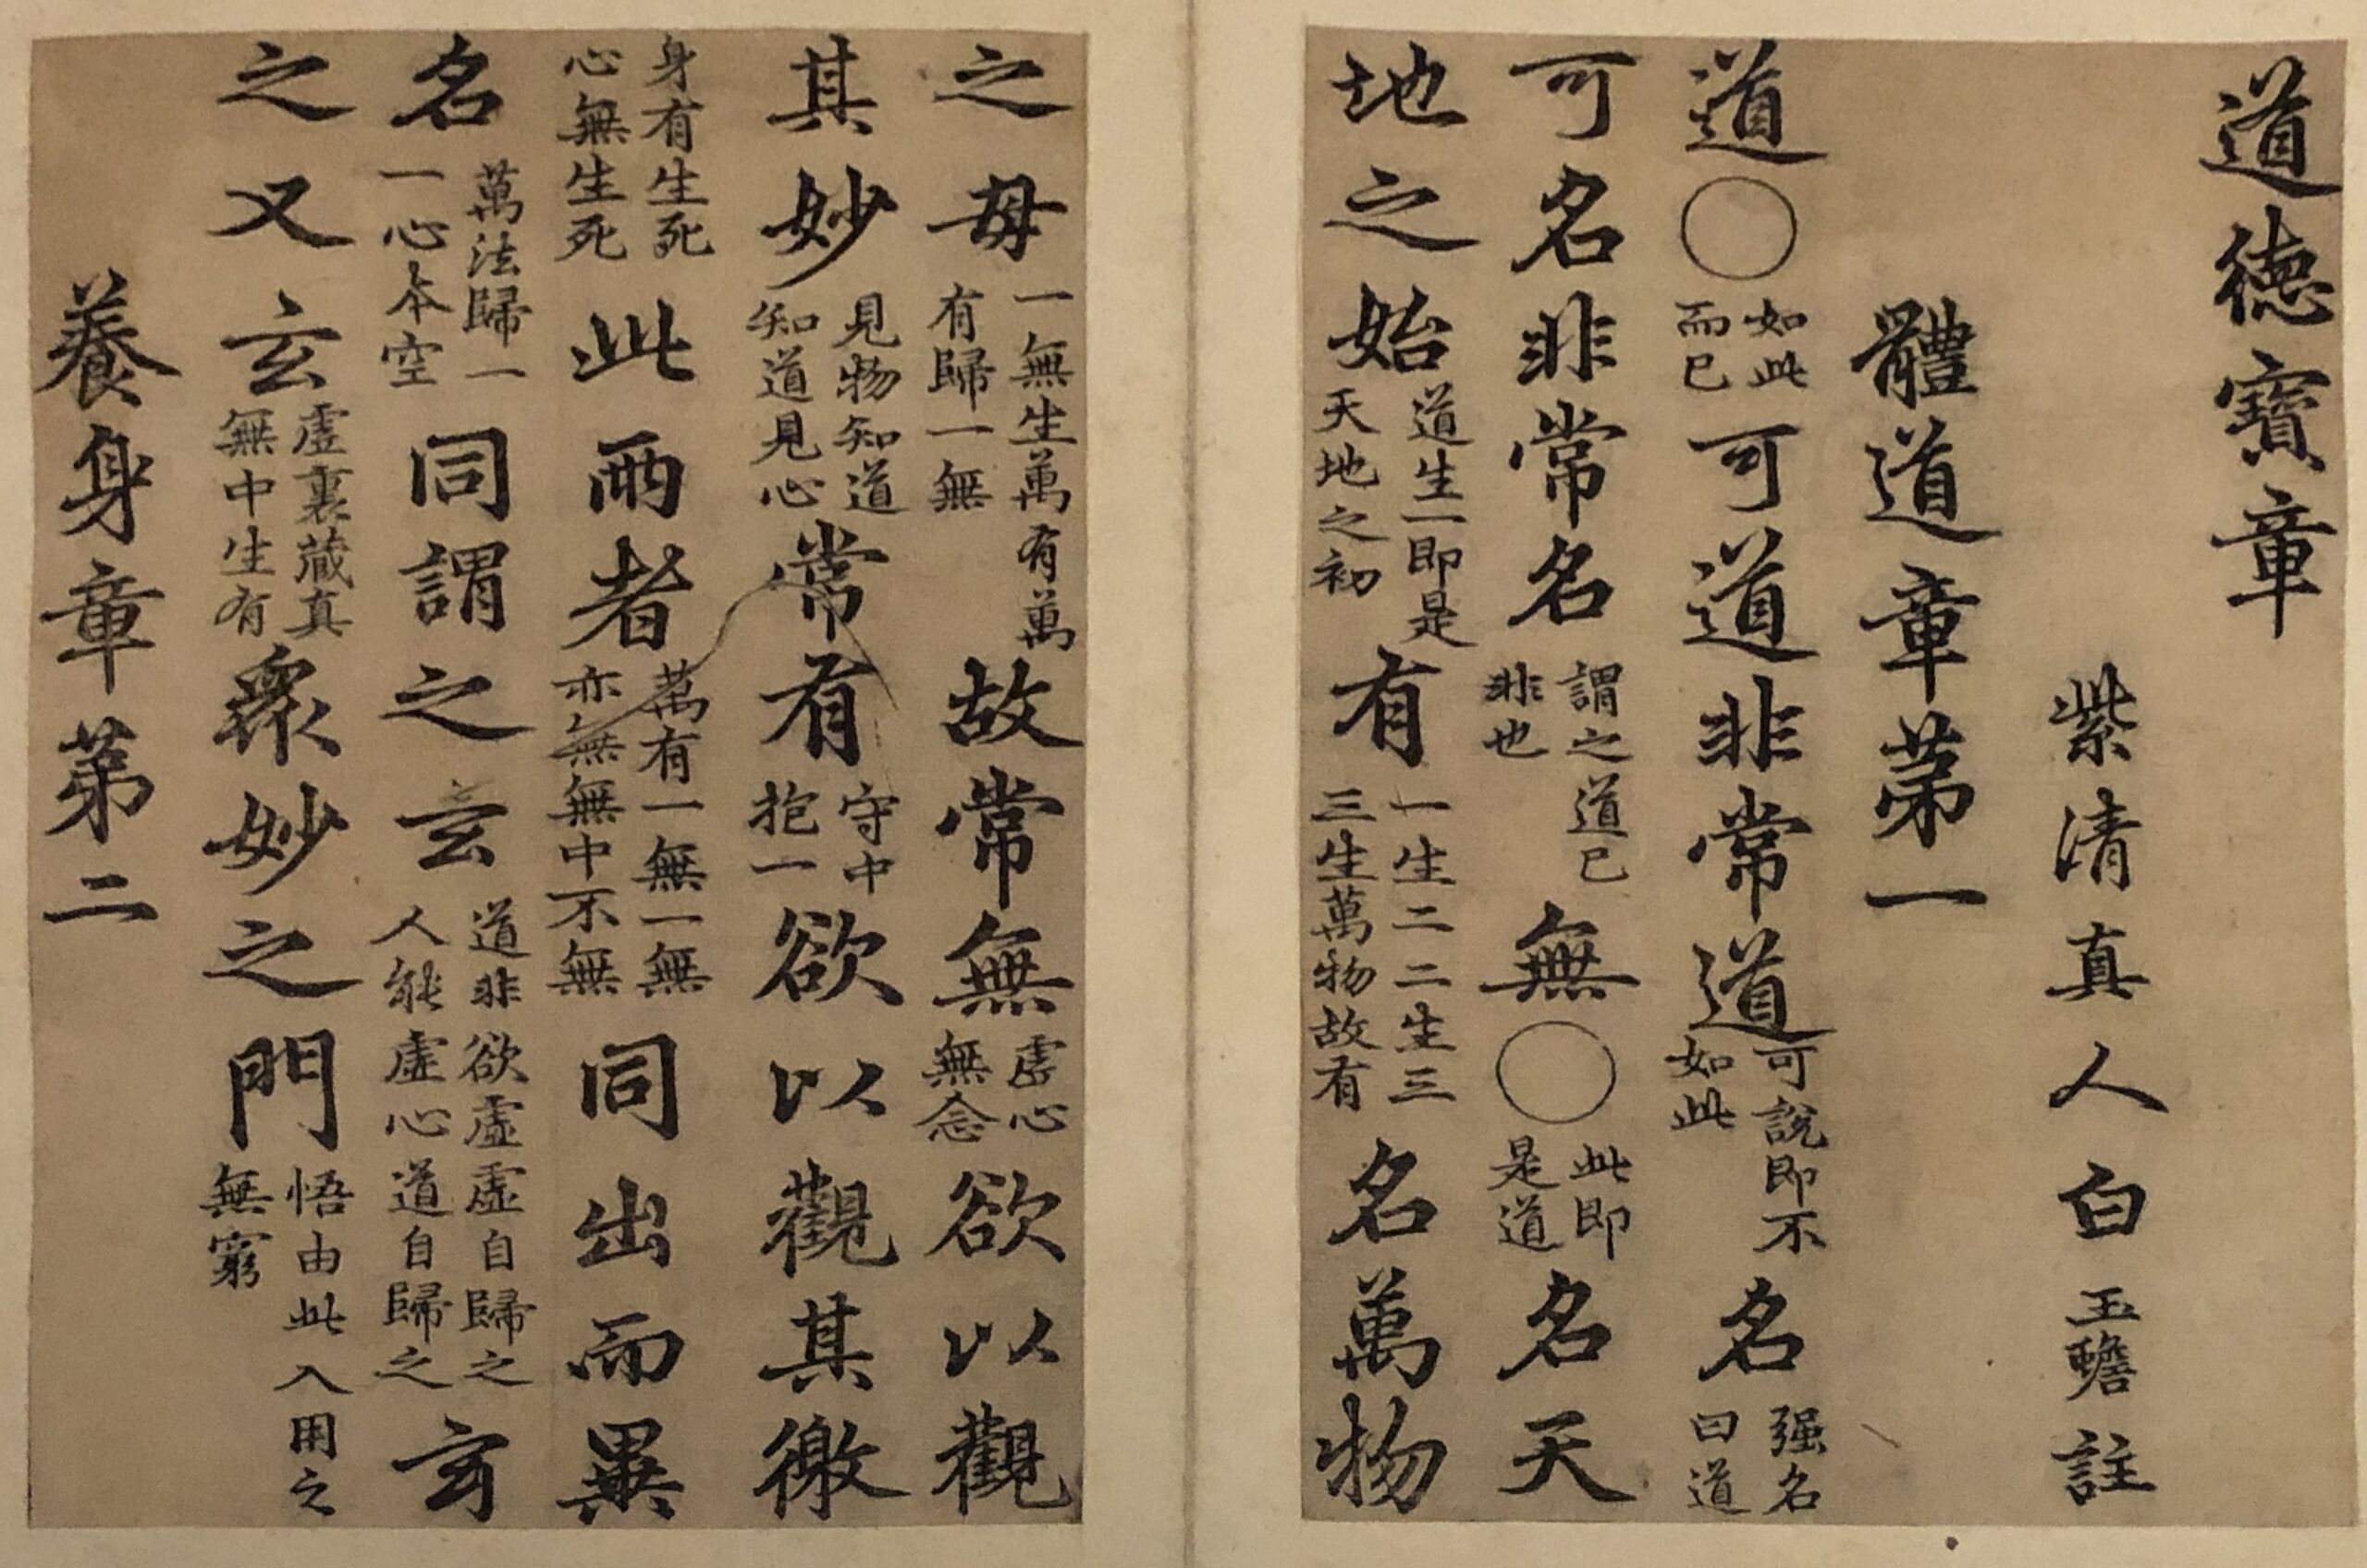 道德寶章
紫清真人白玉蟾註
體道章苐一
道〇如此而已可道非常道可說即不如此名强名曰道
可名非常名謂之道已非也無〇此即是道名天
地之始道生一即是天地之初有一生二二生三三生萬物故有名萬物
之母一無生萬有萬有歸一無故常無虛心無念欲以觀
其妙見物知道知道見心常有守中抱一欲以觀其徼
身有生死心無生死此兩者萬有一無一無亦無無中不無同出而異
名萬法歸一一心本空同謂之玄道非欲虛虛自歸之人能虛心道自歸之玄
之又玄虛裏藏真無中生有眾妙之門悟由此入用之無窮
養身章苐二